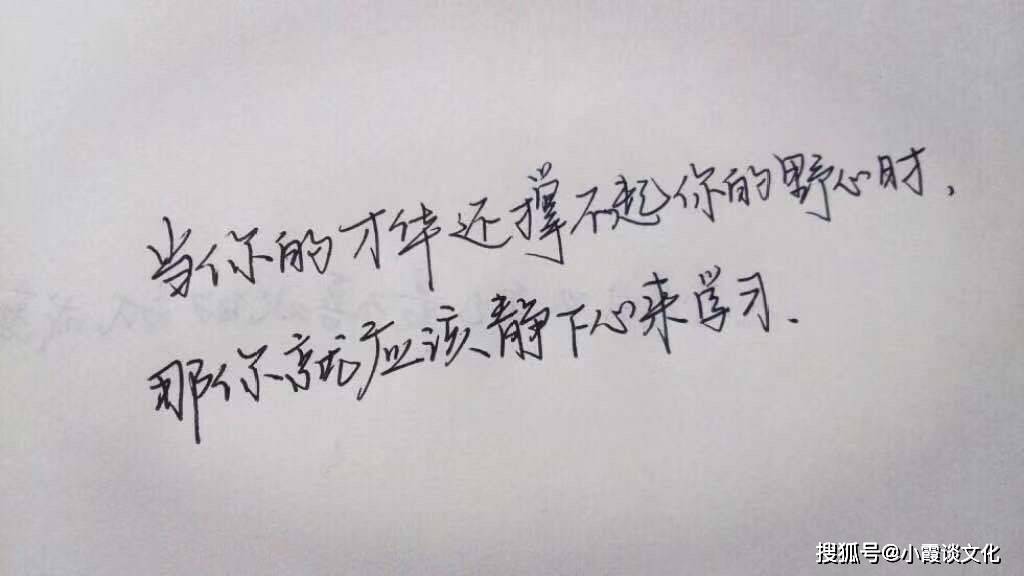 当你的才华还撑不起你的野心时,
那你就应该静下心来学习.
搜狐号@小霞谈文化